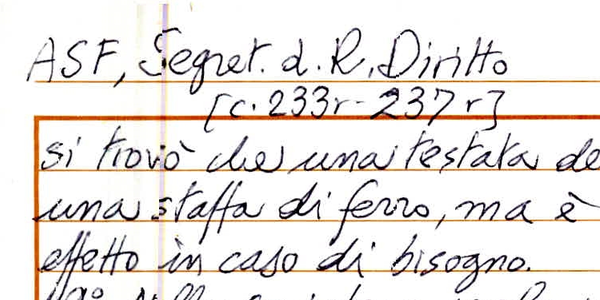 ASF, Segret. d. R. Diritto
[c. 233r - 237r]
si trovò che una testata de
una staffa di ferro, ma è
effetto in caso di bisogno.